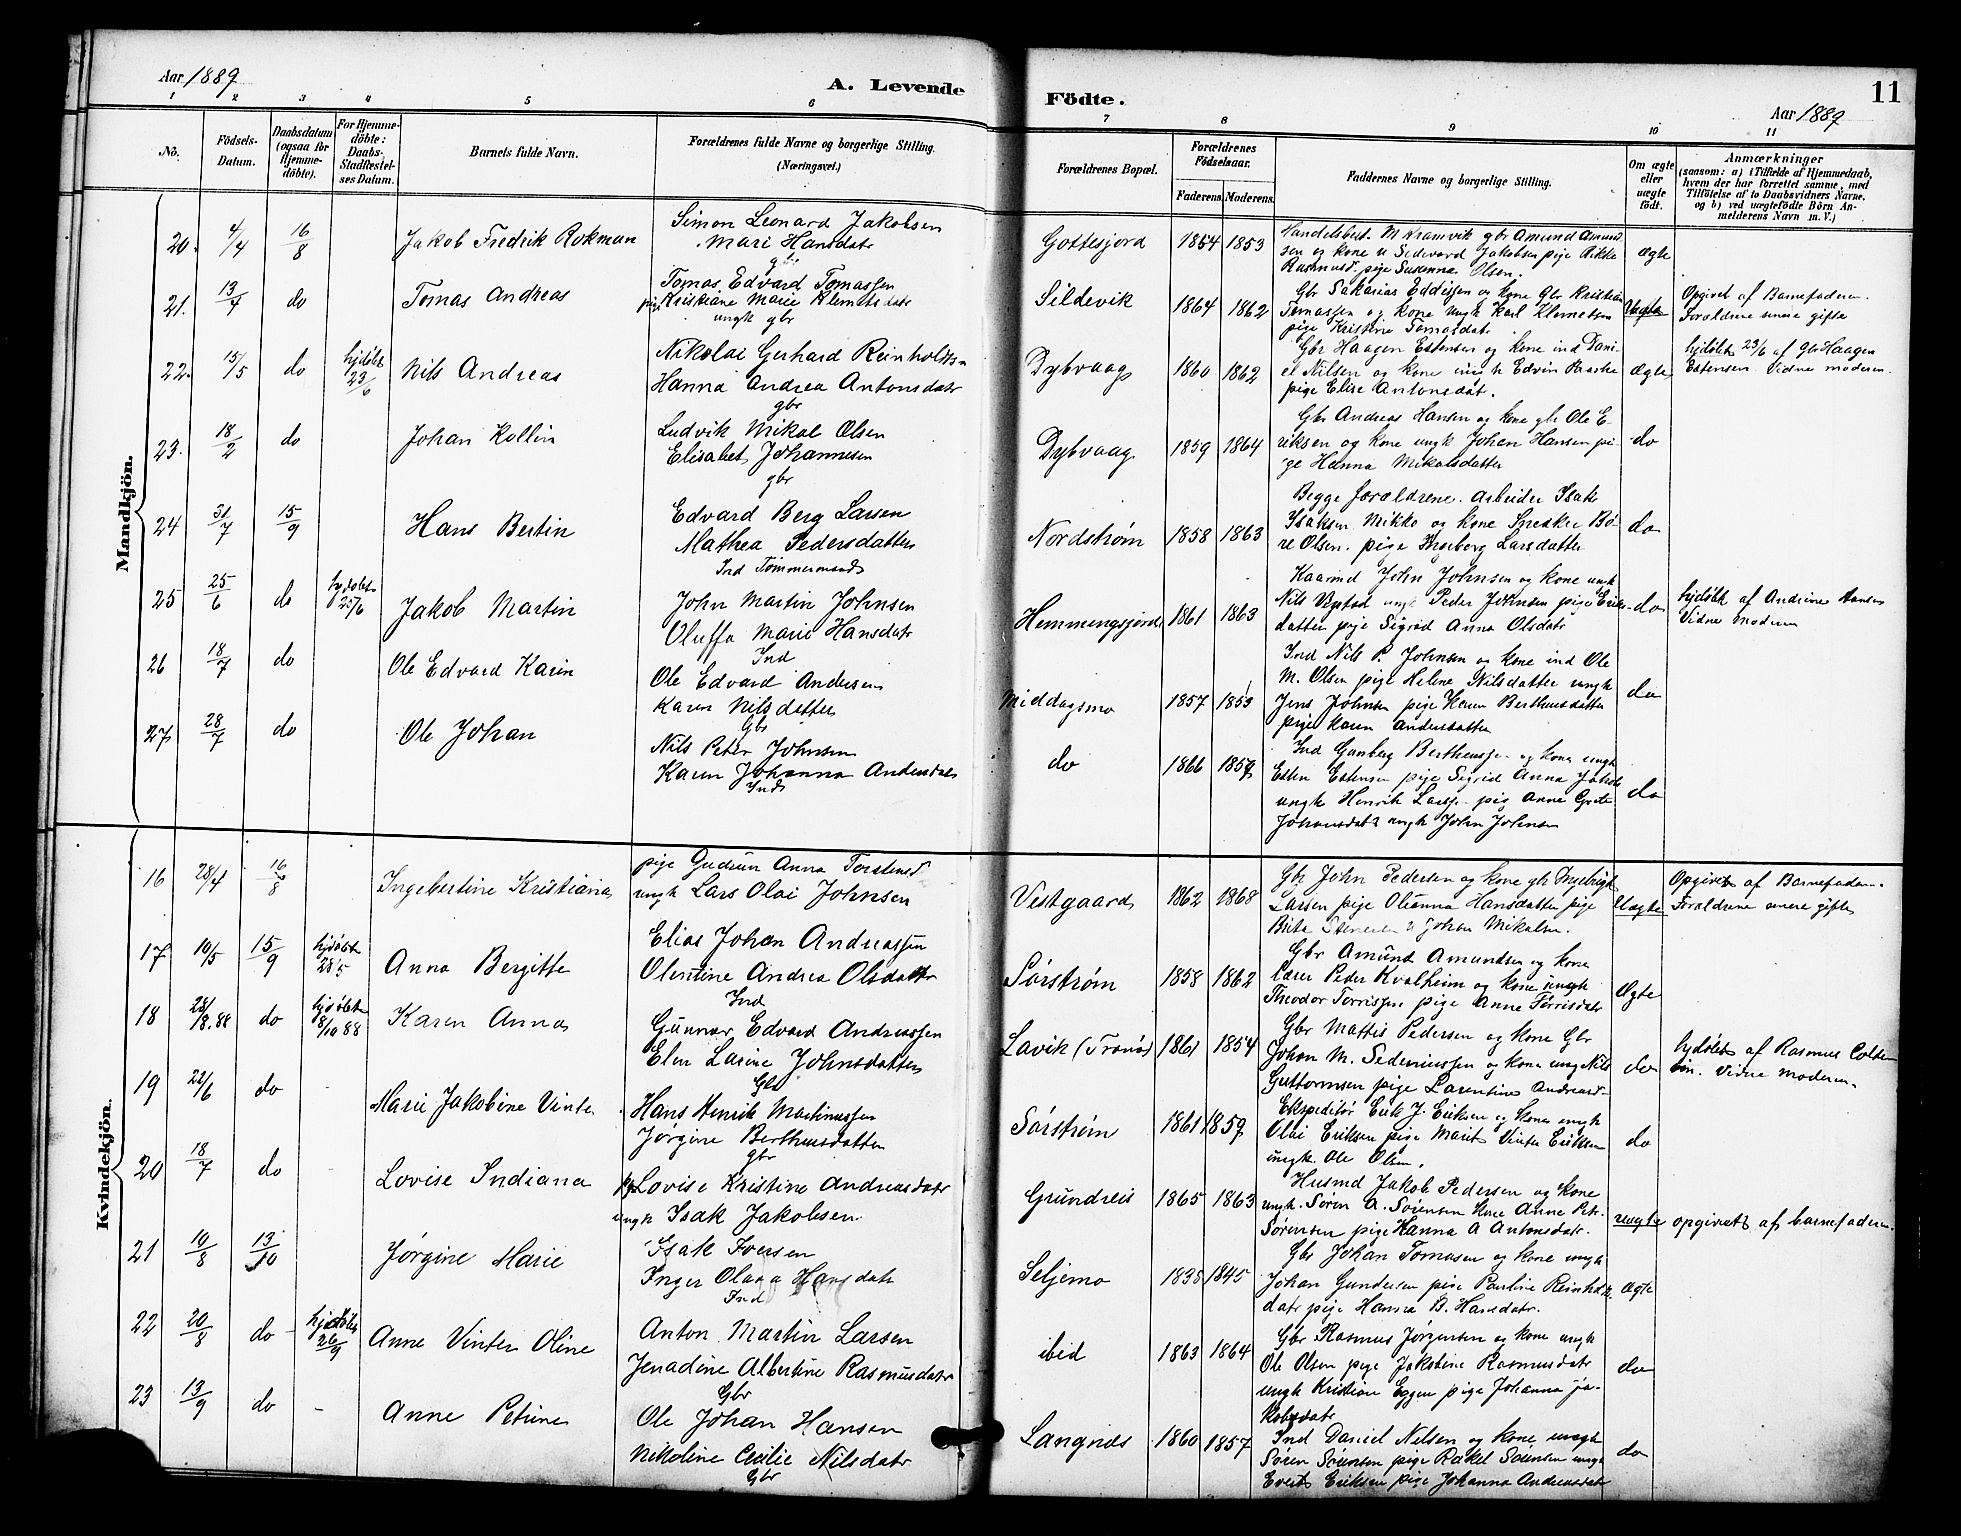 Aar 1889
A. Levende
Födte.
11
Aar 1889
1 2 3 4 5 6 7 8 9 10 11
No.
Födsels-Datum.
Daabsdatum (ogsaa för Hjemme-döbte).
For Hjemme-döbte: Daabs-Stadfæstel-ses Datum.
Barnets fulde Navn.
Forældrenes fulde Navne og borgerlige Stilling.
(Næringsvei.)
Forældrenes Bopæl.
Forældrenes Födselsaar.
Faderens. Moderens.
Faddernes Navne og borgerlige Stilling.
Om ægte eller uægte födt.
Anmærkninger
(saasom: a) i Tilfælde af Hjemmedaab, hvem der har forrettet samme, med Tilföielse af to Daabsvidners Navne, og b) ved uægtefödte Börn Anmelderens Navn m. V.)
Mandkjön.
20. 4/4 16/8 Jakob Fredrik Rokman
Simon Leonard Jakobsen
Mari Hansdatr
gbr
Gottesjord 1854 1853
Handelsbest. M Kramvik gbr Amund Amund
sen og kone u Sedevard Jakobsen pige Rikke
Rasmusd. pige Susanna Olsen.
ægte
21. 13/4 do Tomas Andreas
Tomas Edvard Tomassen
pige Kristiane Marie Klemetsdatr
ungk gbr
Sildevik 1864 1862
Gbr Sakarias Eddissen og kone Gbr Kristian
Tomassen og kone ungk Karl Klemetsen
pige Kristine Tomasdat.
Uægte
Opgivet af Barnefaderen.
Forældrene senere gifte
22. 15/5 do hjdøbt 23/6 Nils Andreas
Nikolai Gerhard Reinholtsn
Hanna Andrea Antonsdatr
gbr
Dybvaag 1860 1862
Gbr Haagen Estensen og kone ind Dani
el Nilsen og kone ungk Edvin Raaske
pige Elise Antonsdat.
ægte
hjdøbt 23/6 af Gbr Haagen
Estensen Vidne moderen.
23. 18/2 do Johan Kollin
Ludvik Mikal Olsen
Elisabet Johannesen
gbr
Dybvaag 1859 1864
Gbr Andreas Hansen og kone gbr Ole E-
riksen og kone ungk Johan Hansen pi-
ge Hanna Mikalsdatter
do
24 31/7 15/9 Hans Bertin
Edvard Berg Larsen
Mathea Pedersdatter
Ind Tømmermand
Nordstrøm 1858 1863
Begge forældrene. Arbeider Isak
Isaksen Mikko og kone Snekker Bø-
re Olsen. pige Ingeborg Larsdatter
do
25 25/6 do hjdøbt 25/6 Jakob Martin
John Martin Johnsen
Oluffa Marie Hansdatr
Ind
Hemmengsjord 1861 1863
Kaarmd John Johnsen og kone ungk
Nils Vestad ungk Peder Johnsen pige Eriks-
datter pige Sigrid Anna Olsdatr
do
hjdøbt af Andrine Hansen
Vidne moderen
26 18/7 do Ole Edvard Karin
Ole Edvard Andersen
Karen Nilsdatter
Gbr
Middagsmo 1857 1853
Ind Nils P. Johnsen og kone ind Ole
M. Olsen pige Helene Nilsdatter ungk
Jens Johnsen pige Karen Berthusdatter
pige Karen Andersdatter
do
27 28/7 do Ole Johan
Nils Peter Johnsen
Karen Johanna Andersdatr
Inds
do 1866 1859
Ind Gunberg Bertheusse og kone ungk
Esten Estensen pige Sigrid Anna Jakobs
ungk Henrik Larss pig Anne Grete
Johansdatr ungk John Johnsen
do
Kvindekjön.
16 28/4 16/8 Ingebertine Kristiana
pige Gudrun Anna Torstensd
ungk Lars Olai Johnsen
Vestgaard 1862 1868
Gbr John Pedersen og kone gbr Ingebrigt
Larsen pige Oleanna Hansdatter pige
Brita Stenersen u Johan Mikalsen.
Uægte
Opgivet af Barnefaderen.
Forældrene senere gifte
17 10/5 15/9 hjdøbt 28/5 Anna Bergitte
Elias Johan Andreassen
Olentine Andrea Olsdatter
Ind
Sørstrøm 1858 1862
Gbr Amund Amundsen og kone
Lærer Peder Kvalheim og kone ungk
Theodor Torrissen pige Anne Torrisdatr
Ægte
18 28/8.88 do hjdøbt 8/10 88 Karen Anna
Gunnar Edvard Andreassen
Elen Larine Johnsdatter
Gbr
Lavik (Tranø) 1861 1854
Gbr Mattis Pedersen og kone Gbr
Johan M. Sedeniussen og kone ungk Nils
Guttormsen pige Larentine Andreasd.
do
hjdøbt af Rasmus Colben
sen. Vidne moderen.
19 22/6 do Marie Jakobine Vinter
Hans Henrik Martinussen
Jørgine Berthusdatter
gbr
Sørstrøm 1861 1859
Ekspeditør Erik J. Eriksen og kone ungk
Olai Eriksen pige Marit Vinter Eriksen
ungk. Ole Olsen.
do
20 18/7 do Lovise Indiana
pg Lovise Kristine Andreasdatr
ungk Isak Jakobsen
Grundreis 1865 1863
Husmd Jakob Pedersen og kone
ungk. Søren A. Sørensen kone Anne Petr.
Sørensen pige Hanna A Antonsdatr.
uægte
opgivet af barnefaderen.
21 10/8 13/10 Jørgine Marie
Isak Iversen
Inger Olava Hansdatr
Ind
Seljemo 1838 1845
Gbr Johan Tomasen og kone ungk
Johan Gundersen pige Pauline Reinholds
datr pige Hanna B. Hansdatr.
Ægte
22 20/8 do hjdøbt 26/9 Anne Vinter Oline
Anton Martin Larsen
Jenadine Albertine Rasmusdatr
Gbr
ibid 1863 1864
Gbr Rasmus Jørgensen og kone ungk
Ole Olsen pige Jakobine Rasmusdatr
ungk Kristian Eggen pige Johanna Ja-
kobsdatr
do
23 13/9 do - Anne Petrine
Ole Johan Hansen
Nikoline Cecilie Nilsdatr
Gbr
Langnes 1860 1857
Ind Daniel Nilsen og kone ungk
Søren Sørensen pige Rakel Sørensen ungk
Evert Eriksen pige Johanna Andreasdatr
do